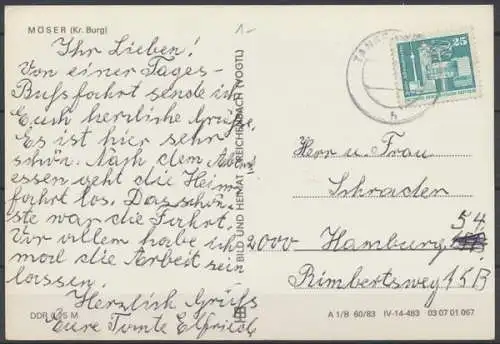 MÖSER (Kr. Burg)
Ihr Lieben!
Von einer Tages-
Busfahrt sende ich
Euch herzliche Grüße.
Es ist hier sehr
schön. Nach dem Abend
essen geht die Heim
fahrt los. Das schön
ste war die Fahrt.
Vor allem habe ich
mal die Arbeit sein
lassen.
Herzlich Grüß
Eure Tante Elfriede
DDR 0,25 M
BILD UND HEIMAT REICHENBACH (VOGTL)
25
h
Herrn u. Frau
Schrader
54
2000 Hamburg
Rimbertsweg 15B
A 1/B 60/83 IV-14-483 03 07 01 067